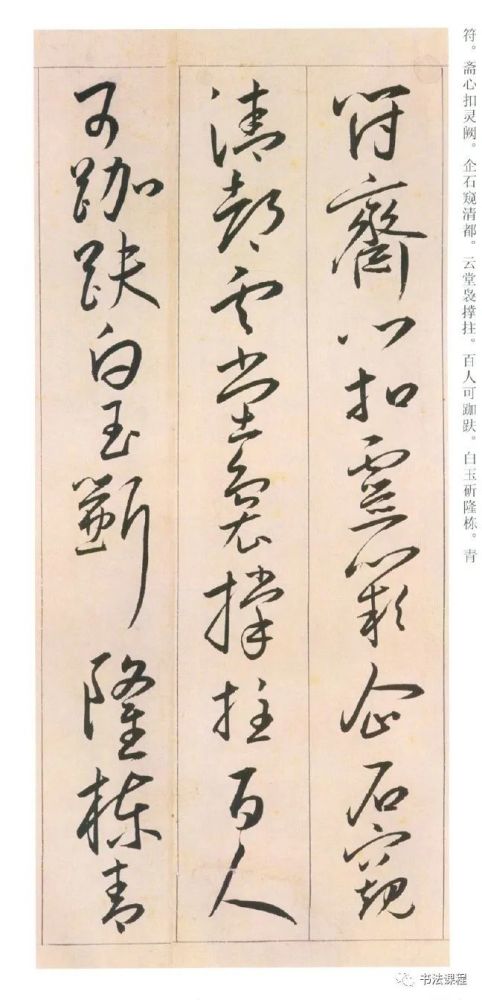 符。斋心扣灵阙。企石窥清都。云堂袅撑拄。百人可跏趺。白玉斫隆栋。青
符齋心扣靈闕企石窺
清都雲堂裊撑拄百人
可跏趺白玉斲隆棟青
书法课程